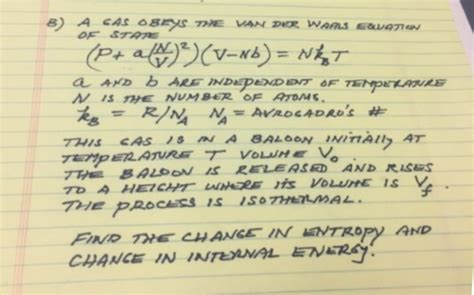 B) A GAS OBEYS THE VAN DER WAALS EQUATION
OF STATE
(P + a(N/V)²)(V-Nb) = Nk_B T
a AND b ARE INDEPENDENT OF TEMPERATURE
N IS THE NUMBER OF ATOMS.
k_B = R/N_A N_A = AVROGADRO'S #
THIS GAS IS IN A BALOON INITIALLY AT
TEMPERATURE T VOLUME V₀.
THE BALOON IS RELEASED AND RISES
TO A HEIGHT WHERE ITS VOLUME IS V_f.
THE PROCESS IS ISOTHERMAL.
FIND THE CHANGE IN ENTROPY AND
CHANGE IN INTERNAL ENERGY.